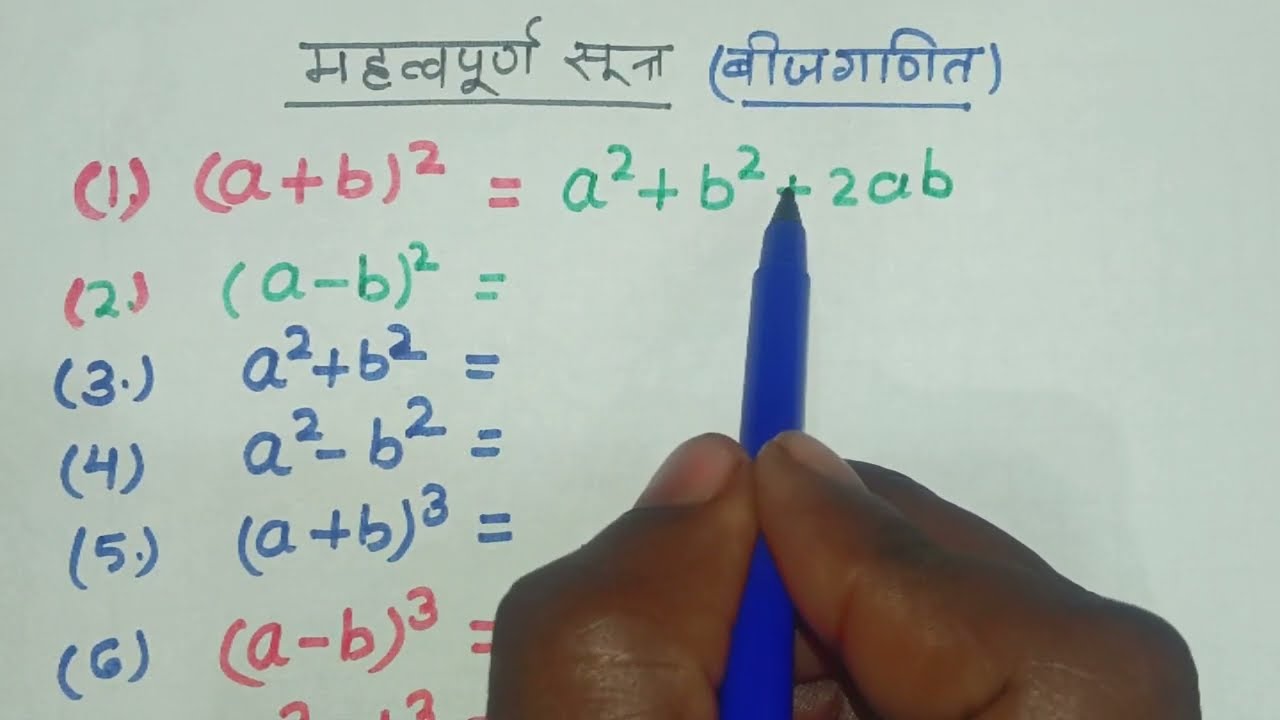 महत्वपूर्ण सूत्र (बीजगणित)
(1.) (a+b)² = a²+b²+2ab
(2.) (a-b)² =
(3.) a²+b² =
(4) a²-b² =
(5.) (a+b)³ =
(6) (a-b)³ =